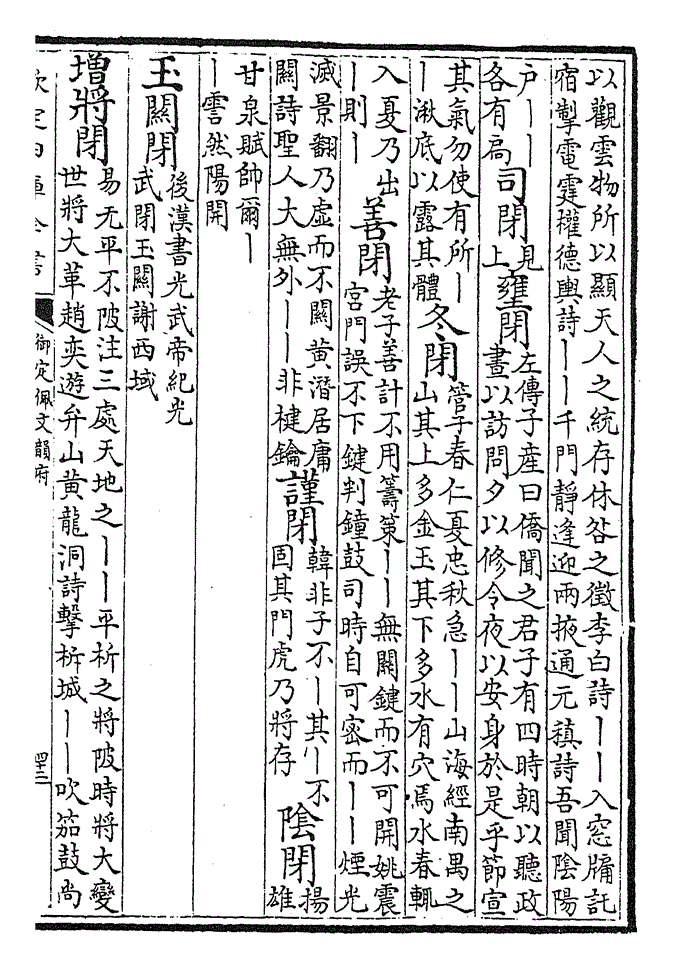 以觀雲物所以顯天人之統存休咎之徵李白詩丨丨入窓牖託
宿掣電霆權德輿詩丨丨千門靜逢迎兩掖通元稹詩吾聞陰陽
户丨丨
各有扃
司閉
見
上
壅閉
左傳子産曰僑聞之君子有四時朝以聽政
晝以訪問夕以修令夜以安身於是乎節宣
其氣勿使有所丨
丨湫底以露其體
冬閉
管子春仁夏忠秋急丨丨山海經南禺之
山其上多金玉其下多水有穴焉水春輒
入夏乃出
丨則丨
善閉
老子善計不用籌策丨丨無關鍵而不可開姚震
宮門誤不下鍵判鐘鼓司時自可密而丨丨煙光
滅景翻乃虛而不關黄潛居庸
關詩聖人大無外丨丨非楗鑰
謹閉
韓非子不丨其丨不
固其門虎乃將存
陰閉
揚
雄
甘泉賦帥爾丨
丨霅然陽開
玉關閉
後漢書光武帝紀光
武閉玉關謝西域
增將閉
易无平不陂注三處天地之丨丨平析之將陂時將大變
世將大革趙奕遊弁山黄龍洞詩擊柝城丨丨吹笳鼓尚
欽定四庫全書
御定佩文韻府
四三